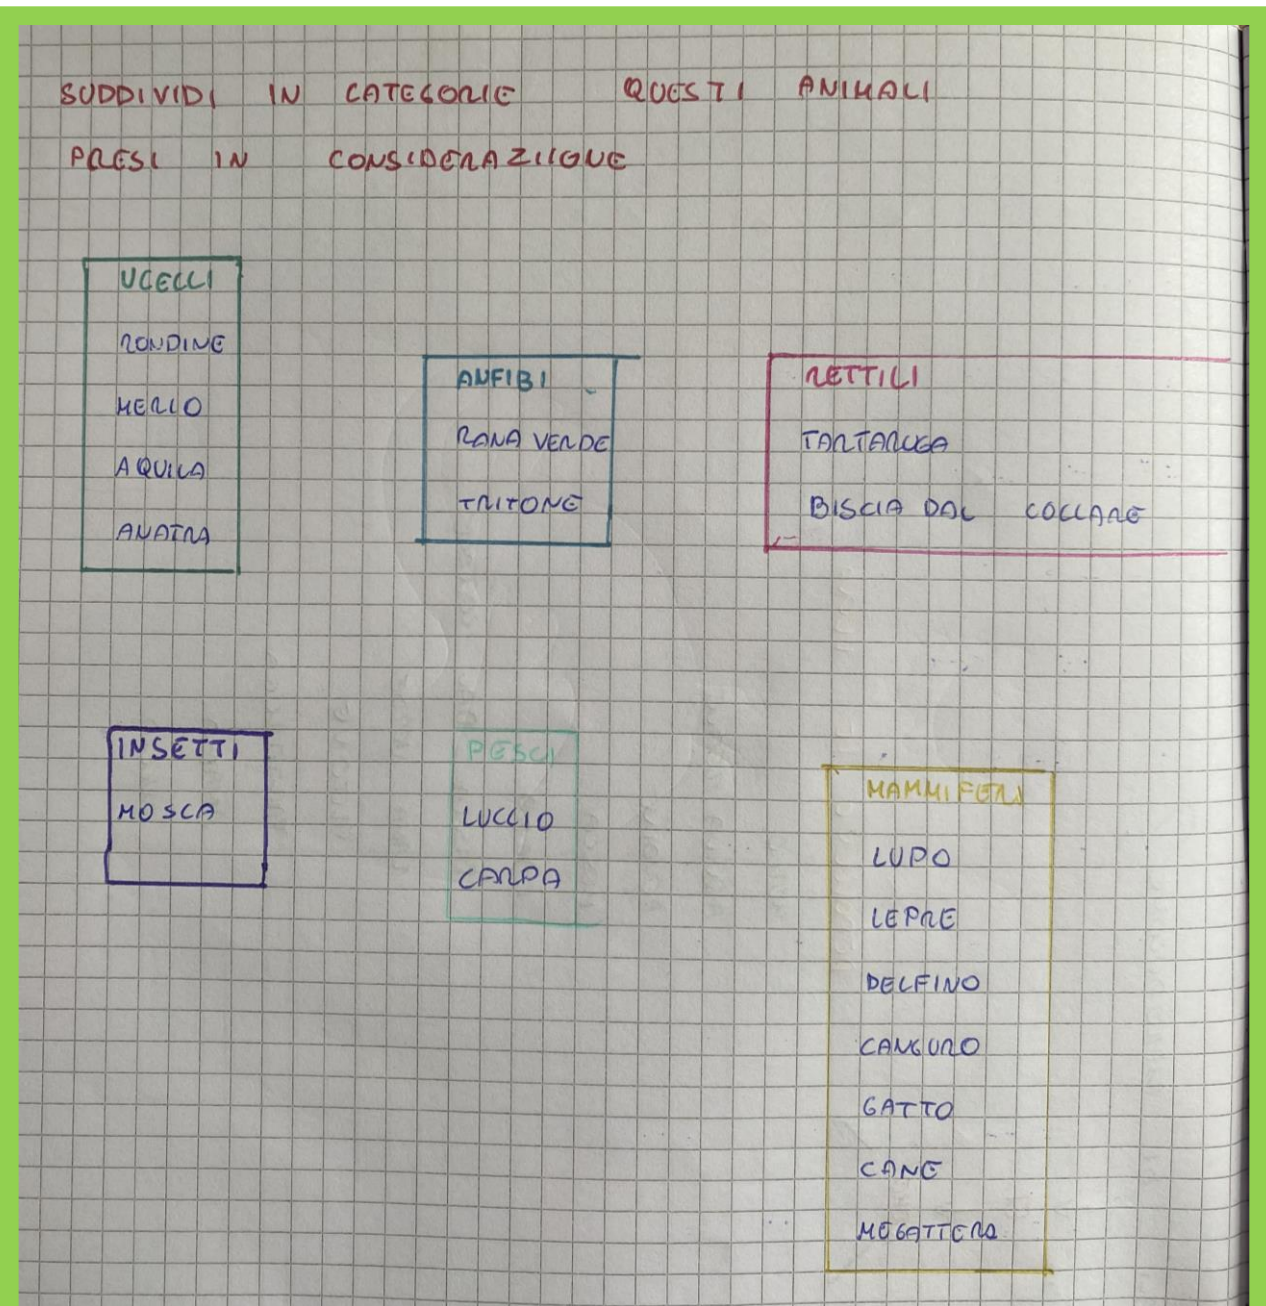 SUDDIVIDI IN CATEGORIE QUESTI ANIMALI
PRESI IN CONSIDERAZIIONE
UCELLI
RONDINE
MERLO
AQUILA
ANATRA
ANFIBI
RANA VERDE
TRITONE
RETTILI
TARTARUGA
BISCIA DAL COLLARE
INSETTI
MOSCA
PESCI
LUCCIO
CARPA
MAMMIFERI
LUPO
LEPRE
DELFINO
CANGURO
GATTO
CANE
MEGATTERA